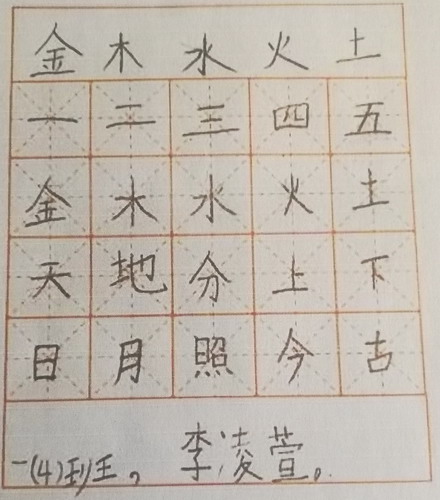 金木水火土
一二三四五
金木水火土
天地分上下
日月照今古
一(4)班，李凌萱。